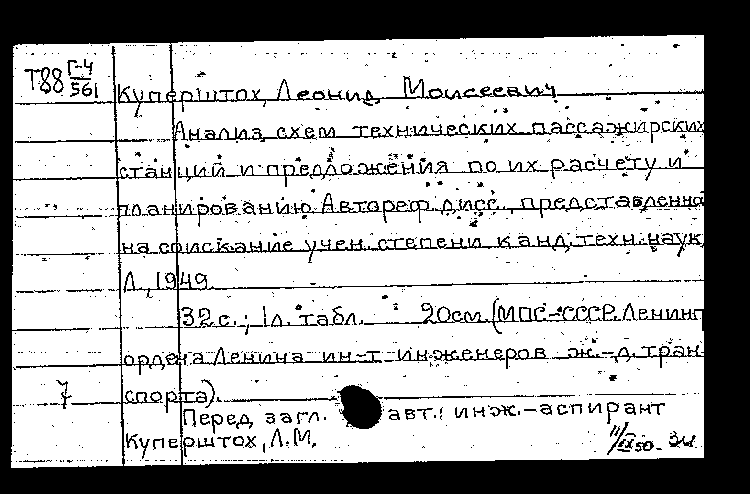 Т88 Г-4
561
Куперштох, Леонид Моисеевич
Анализ схем технических пассажирских
станций и предложения по их расчету и
планированию. Автореф. дисс., представленно
на соискание учен. степени канд. техн. наук
Л., 1949.
32 с.; 1 л. табл. 20 см. (МПС СССР. Ленингр
ордена Ленина ин-т инженеров ж.-д. тран
7 спорта).
Перед загл. авт.: инж.-аспирант
Куперштох, Л.М.
11/IX 50.